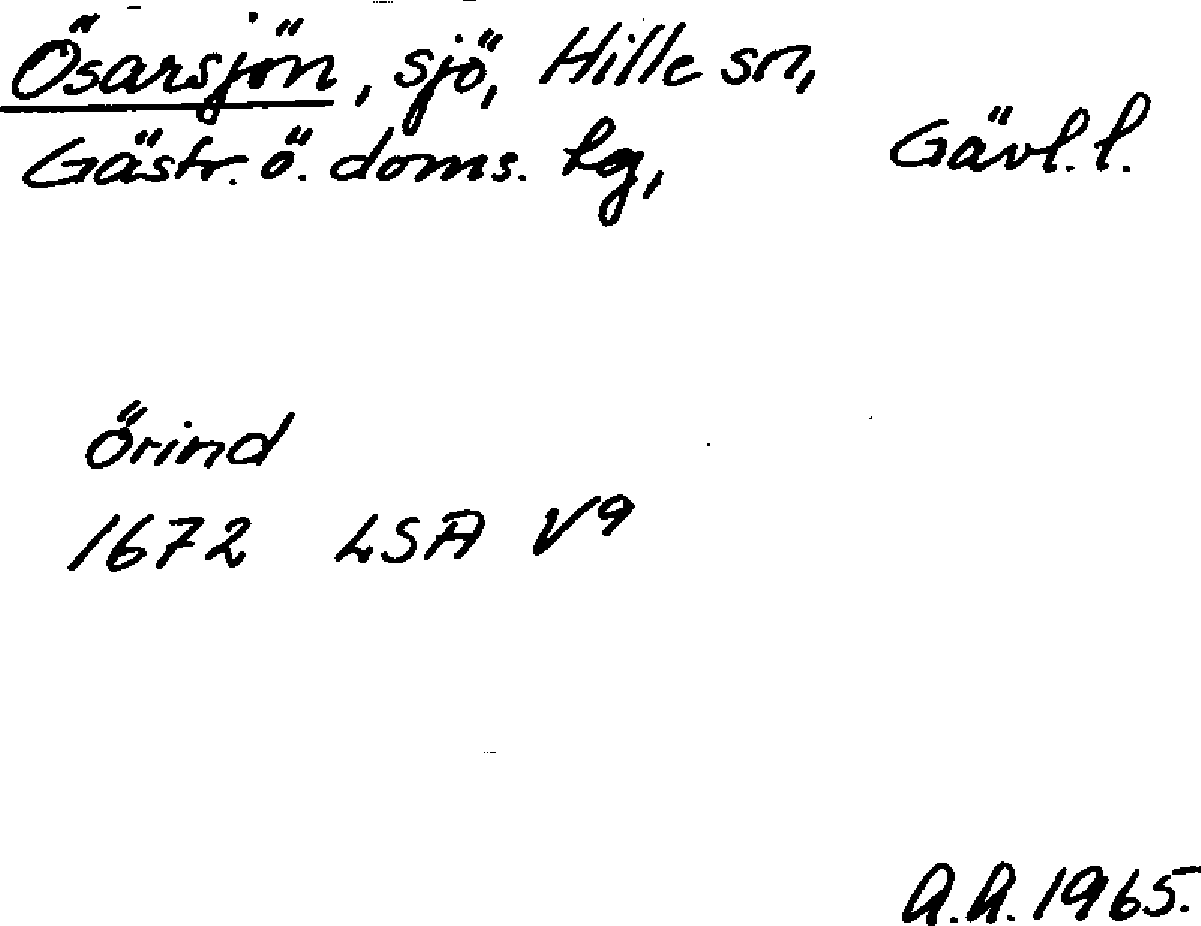 Ösarsjön, sjö, Hille sn,
Gästr. ö. doms. hg, Gävl. l.
Örind
1672 LSA V9
A.A. 1965.